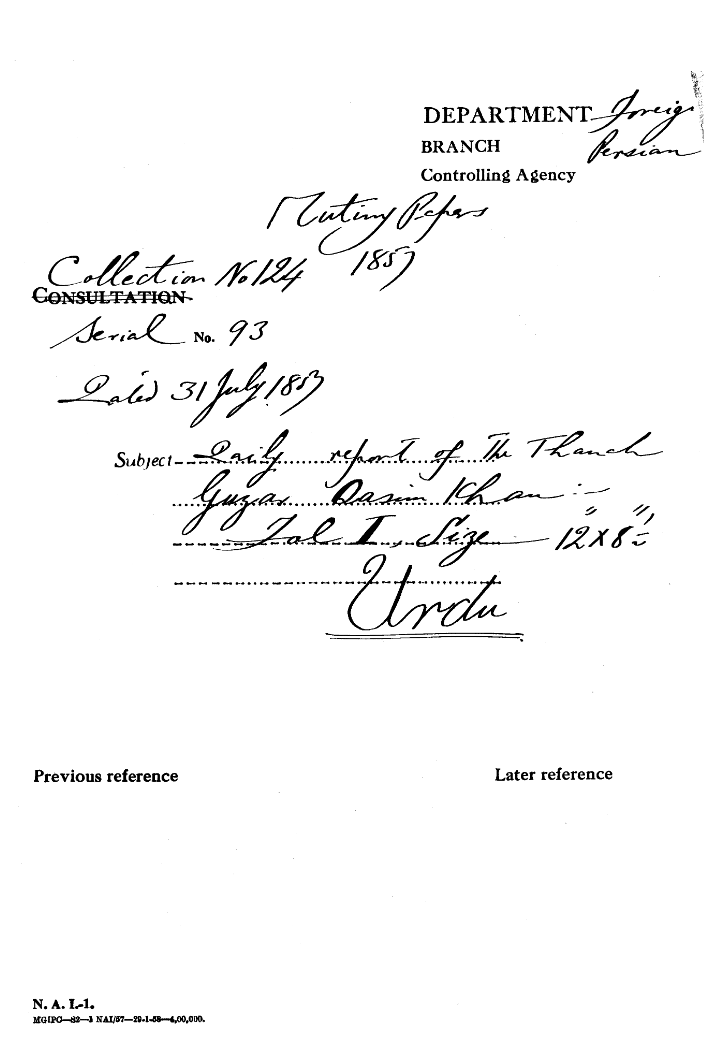 DEPARTMENT Foreign
BRANCH Persian
Controlling Agency
Mutiny Papers
1857
Collection No 124
CONSULTATION
Serial No. 93
Dated 31 July 1857
Subject Daily report of The Thanah
Guzar Qasim Khan :-
Fol I, Size 12" X 8"
Urdu
Previous reference
Later reference
N. A. I.-1.
MGIPC—S2—1 NAI/57—29-1-58—4,00,000.